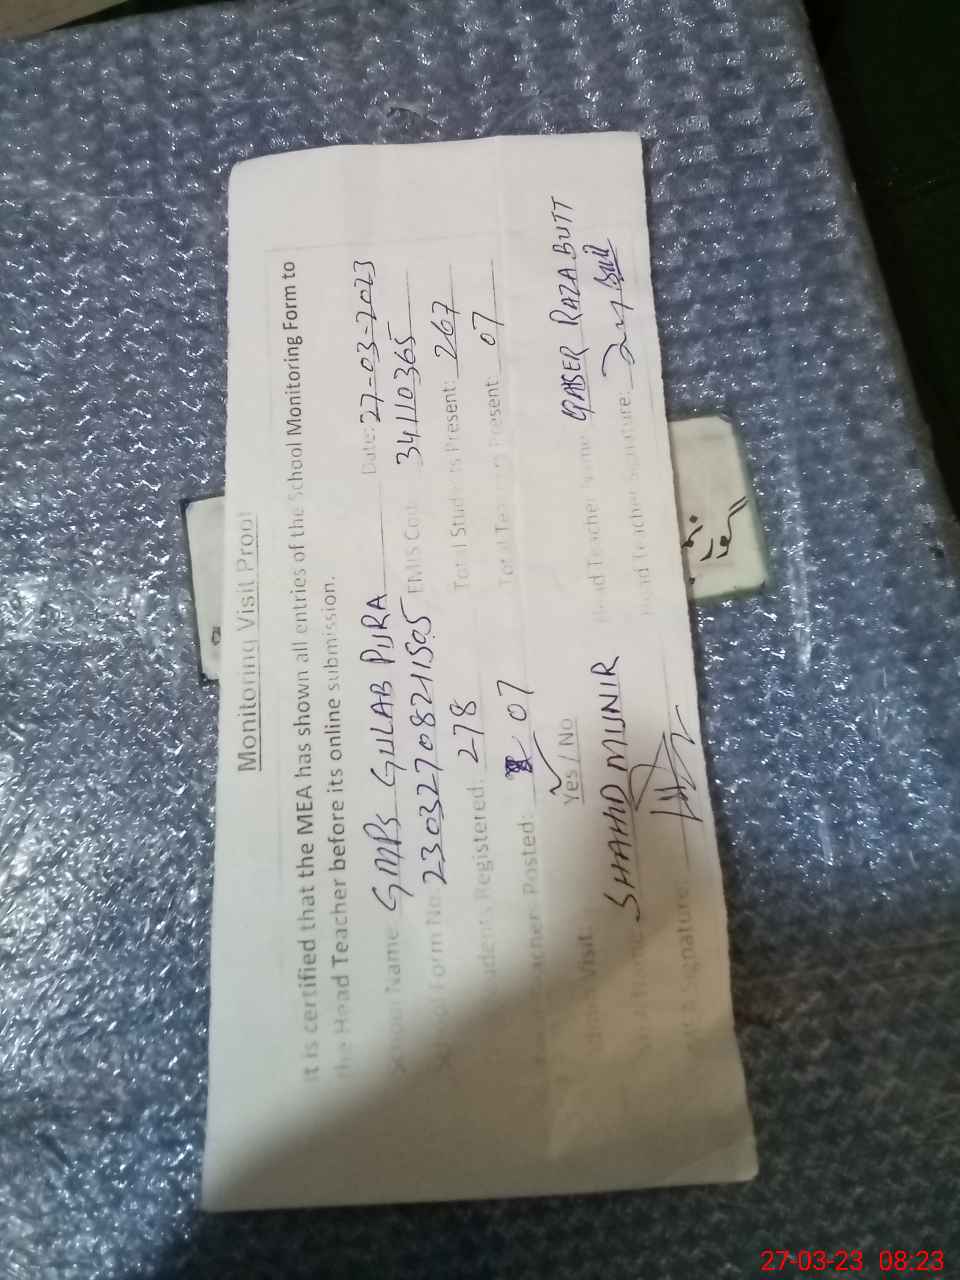 Monitoring Visit Proof
It is certified that the MEA has shown all entries of the School Monitoring Form to
the Head Teacher before its online submission.
School Name: GMPS GULAB PURA Date: 27-03-2023
School Form No: 23032708211505 EMIS Code 34110365
Students Registered: 278 Total Students Present: 267
Teachers Posted: 07 Total Teachers Present 07
Visit: Yes / No
Name SHAHID MUNIR Head Teacher Name RAZA BUTT
MEA Signature: Head Teacher Signature:
27-03-23 08:23